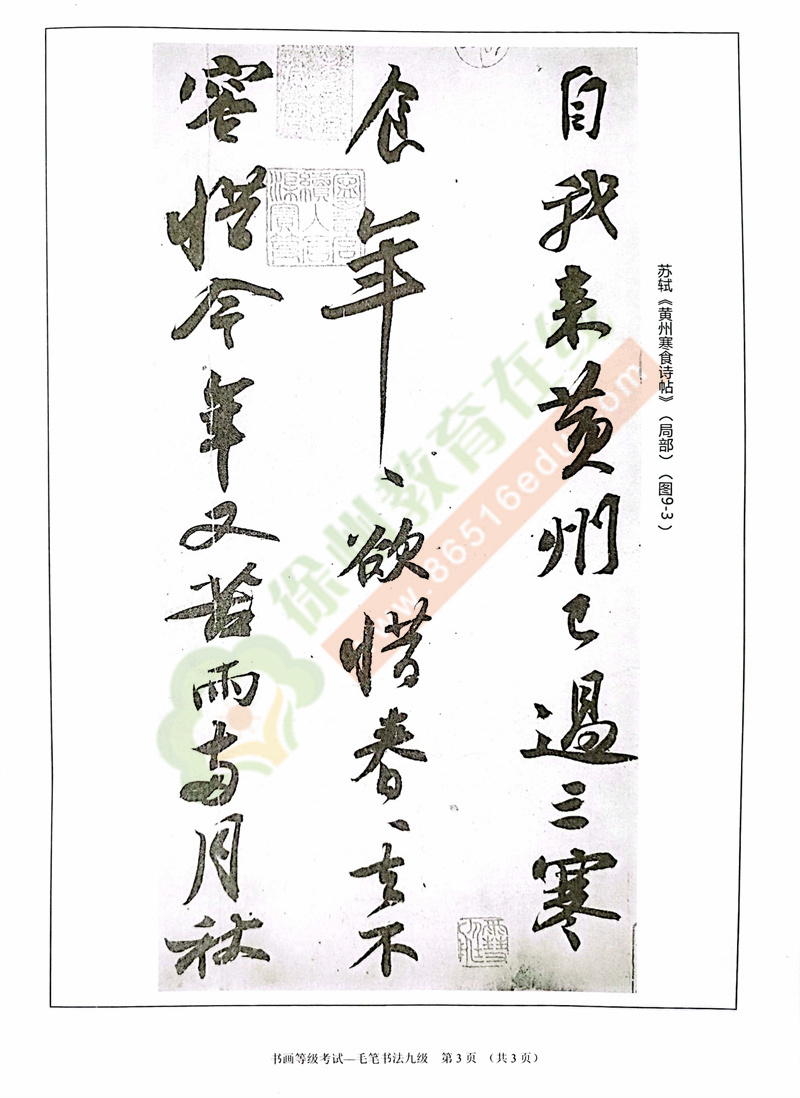 自我来黄州已過三寒
食年、欲惜春、去不
容惜今年又苦雨两月秋
苏轼《黄州寒食诗帖》（局部）（图9-3）
徐州教育在线
www.86516edu.com
书画等级考试—毛笔书法九级 第3页 （共3页）